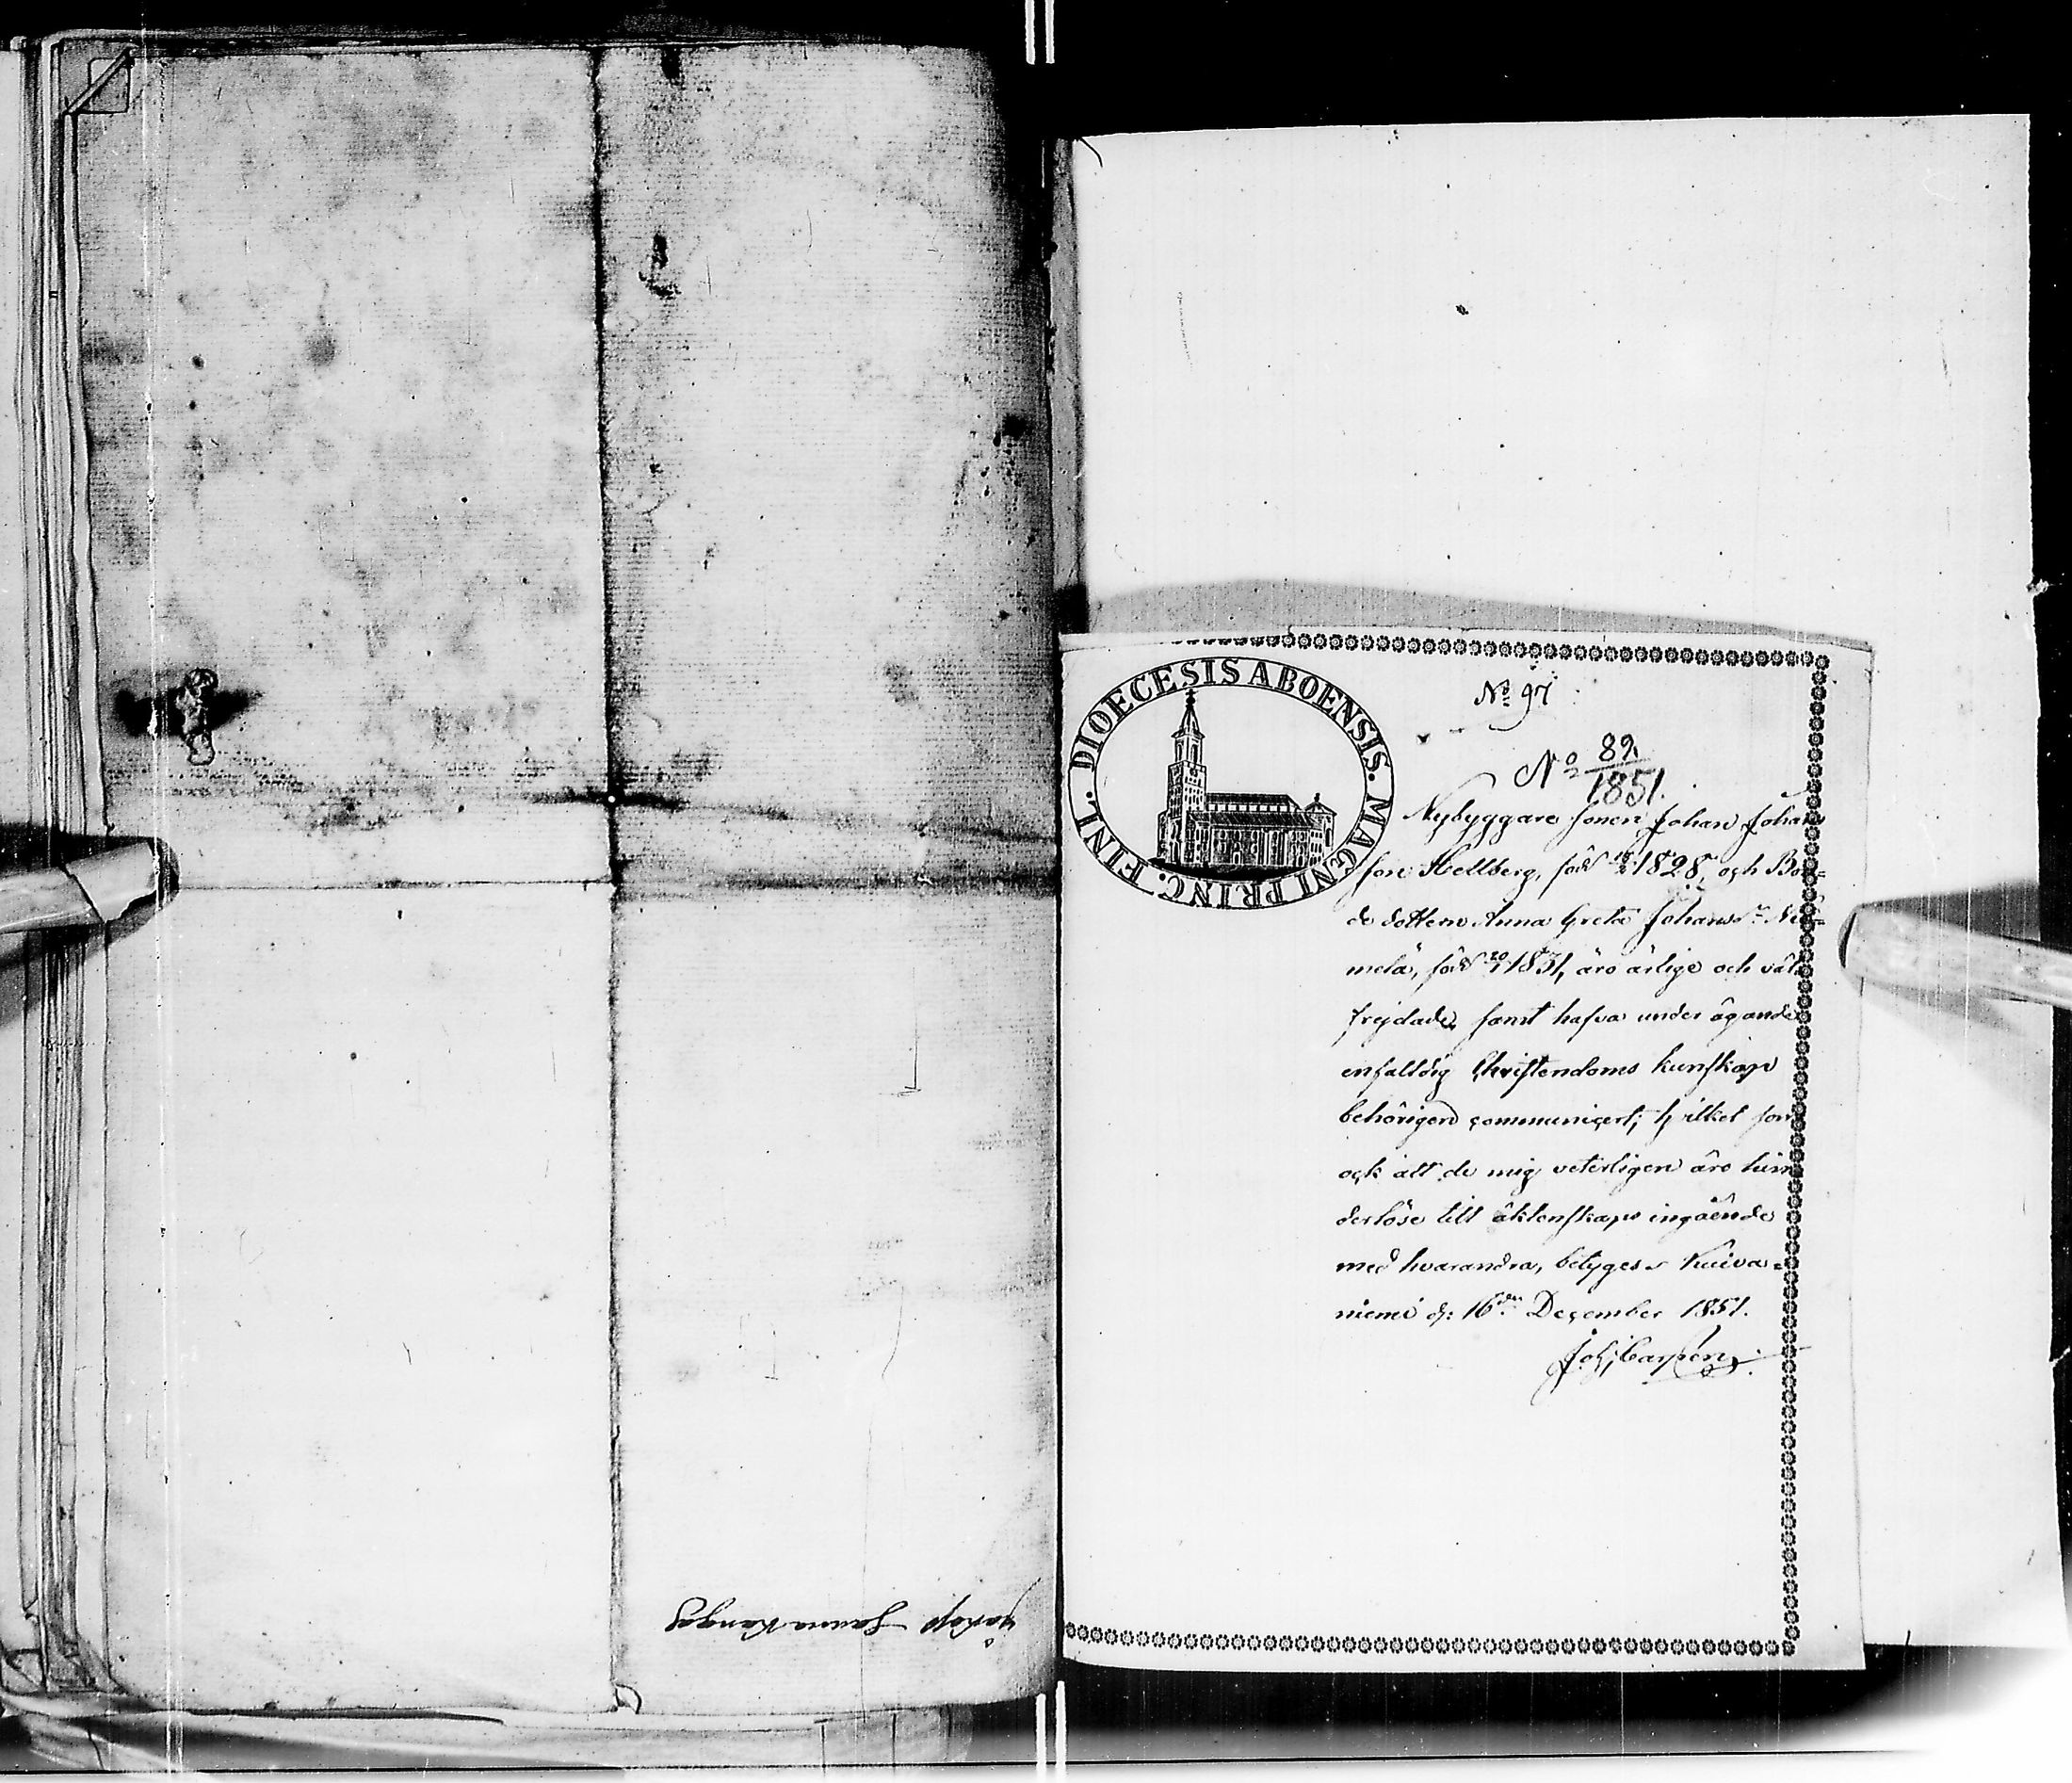 DIOECESIS ABOENSIS. MAGNI PRINC. FINL.
No 97
No 89
1851.
Nybyggare sonen Johan Johans
son Hellberg, född 1828, och Bon=
de dottern Anna Greta Johansdr Nie=
melä, född 20/1 1831, äro ärlige och väl
frejdade, samt hafva under ägande
enfaldig Christendoms kunskap
behörigen communicert; hvilket som
ock att de mig veterligen äro hin
derlöse till äktenskaps ingående
med hvarandra, betyges. Kuiva=
niemi d: 16den December 1851.
Joh. Carlén
Jakop Saura Kangas